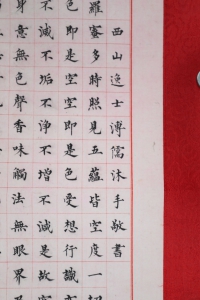 西山逸士溥儒沐手敬書
羅蜜多時照見五蘊皆空度一
色即是空空即是色受想行識
不滅不垢不淨不增不減是故
身意無色聲香味觸法無眼界